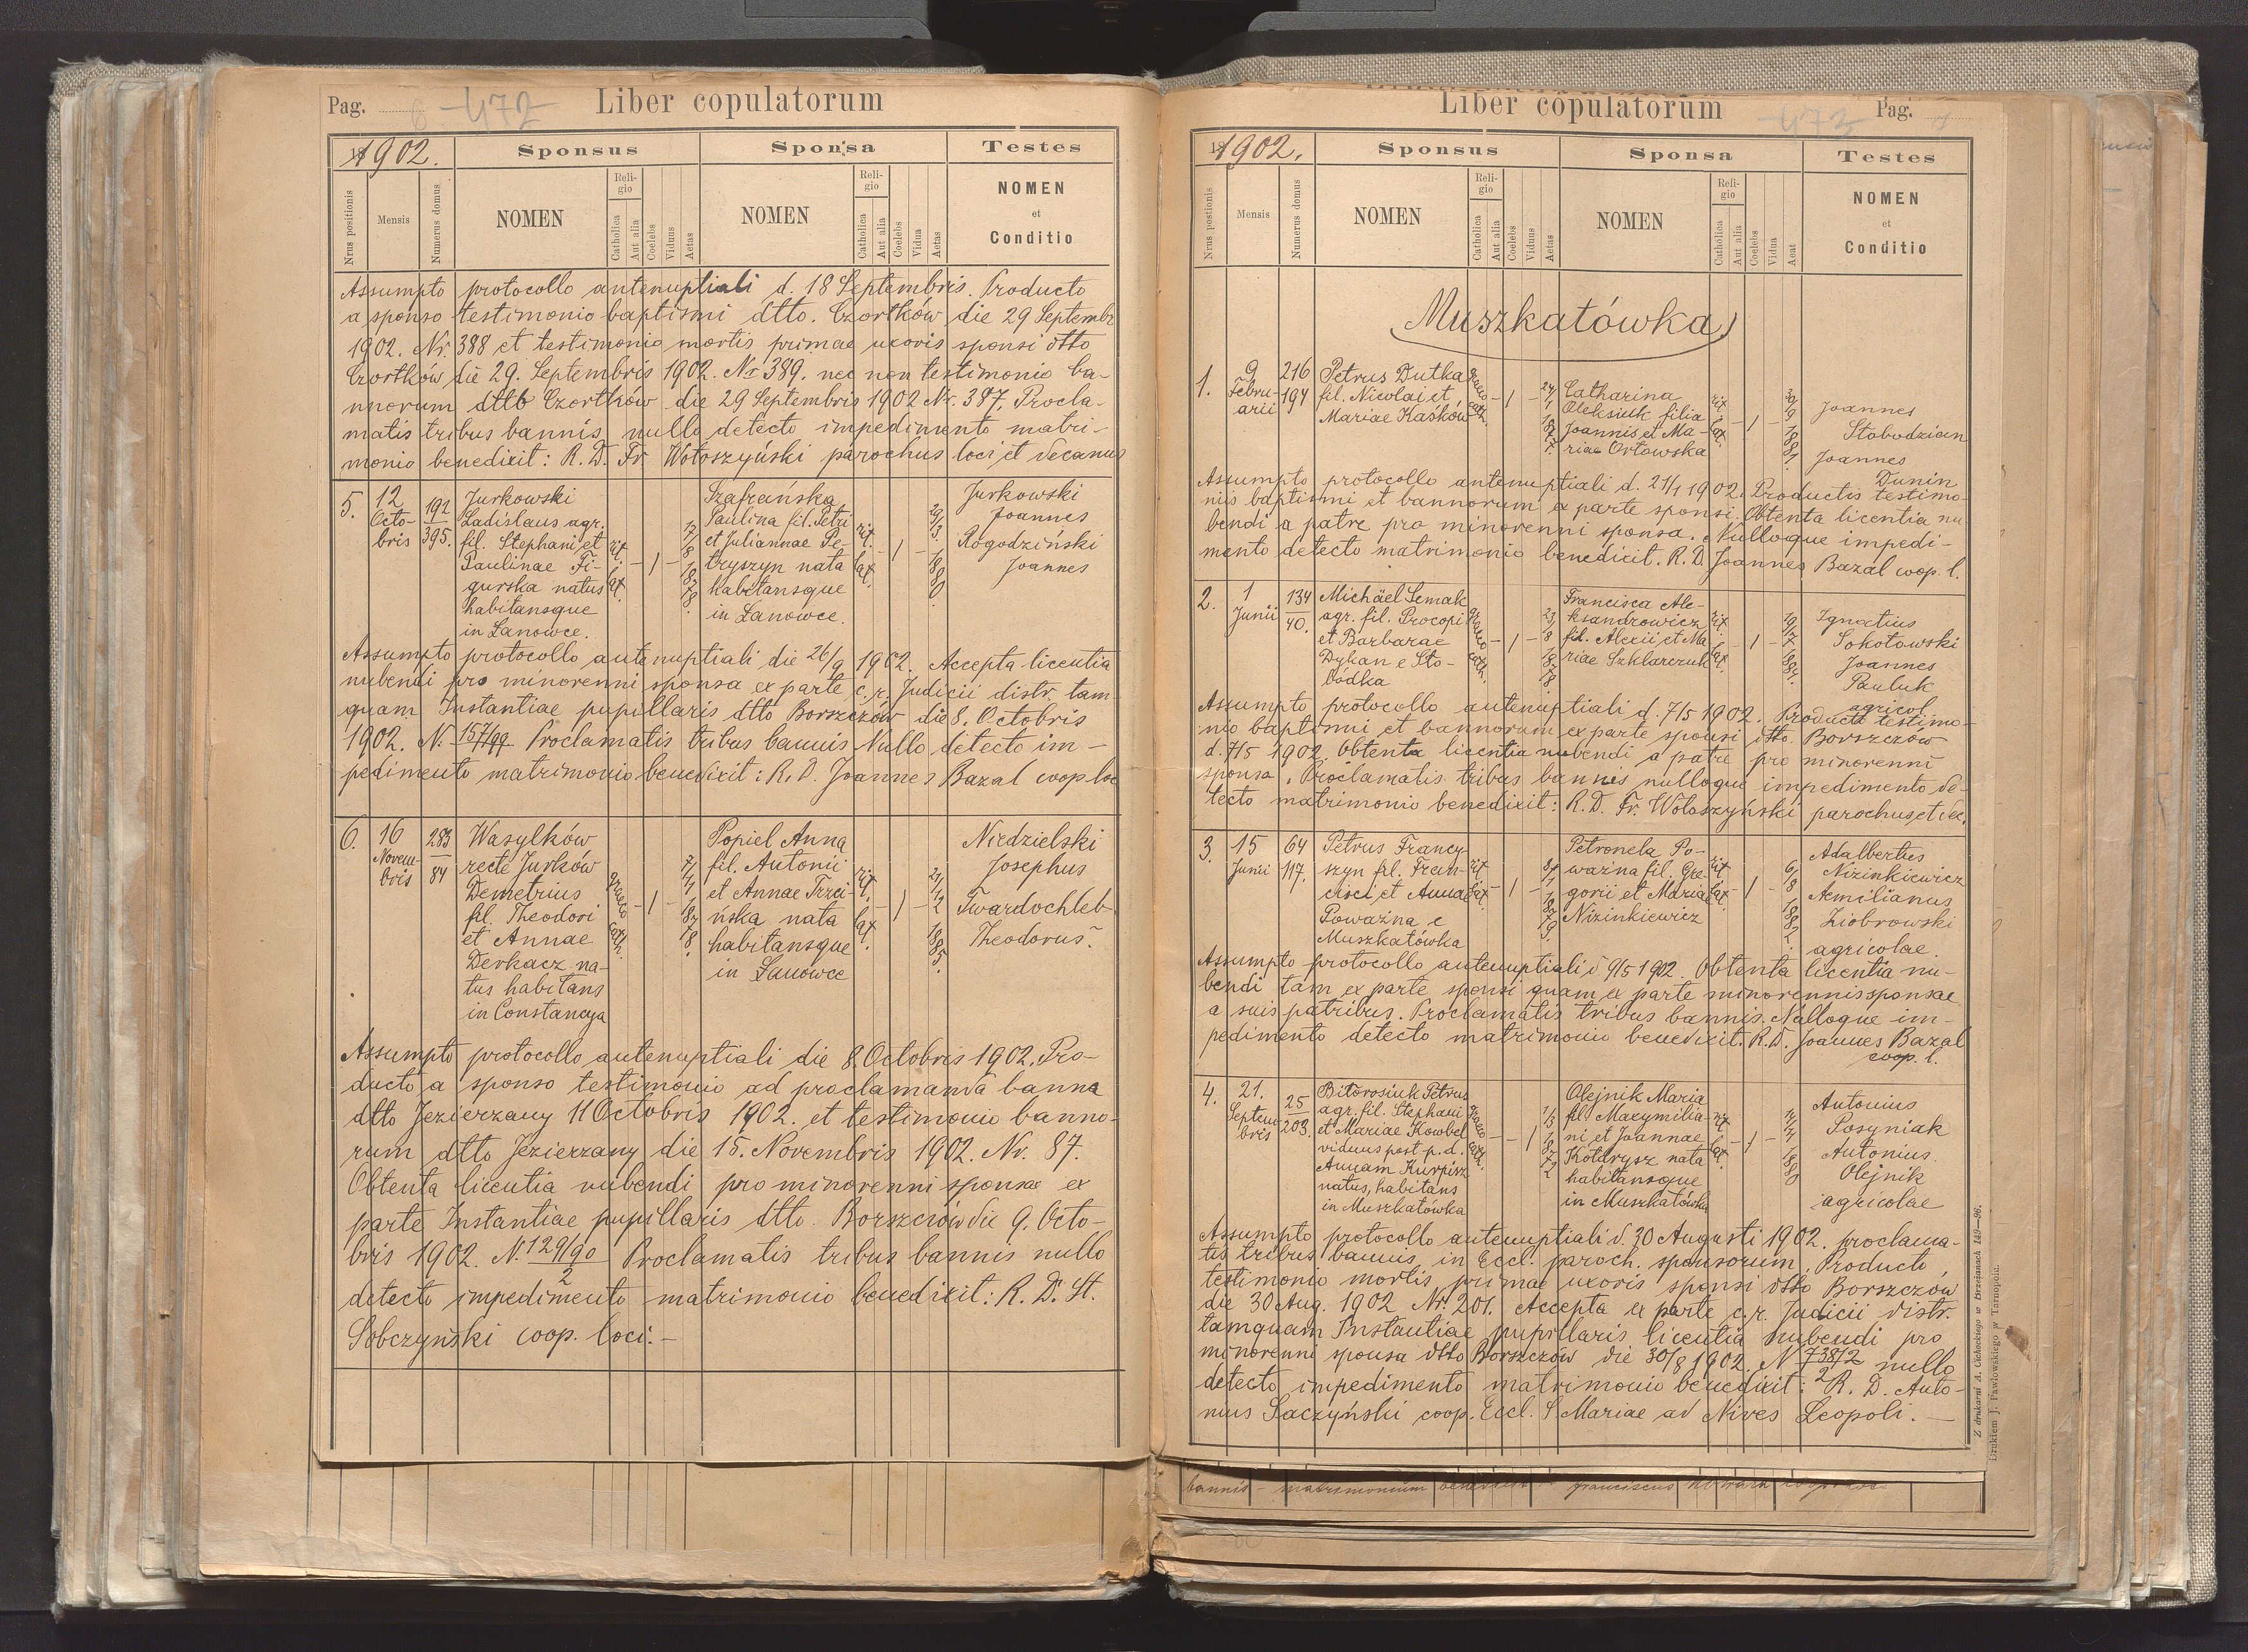 Pag. 472 Liber copulatorum
1902. Sponsus Sponsa Testes
Nrus positionis Mensis Numerus domus NOMEN Religio Catholica Aut alia Coelebs Viduus Aetas NOMEN Religio Catholica Aut alia Coelebs Vidua Aetas NOMEN et Conditio
Assumpto protocollo antenuptiali d. 18 Septembris. Producto
a sponso testimonio baptismi dtto. Czortków die 29 Septembr
1902. Nr. 388 et testimonio mortis primae uxoris sponsi dtto
Czortków die 29. Septembris 1902. Nr 389. nec non testimonio ba-
nnorum dtto Czortków die 29 Septembris 1902 Nr. 387. Procla-
matis tribus bannis nullo detecto impedimento matri-
monio benedixit: R. D. Fr. Wołoszyński parochus loci et decanus
5. 12 Octo-
bris
192
395.
Jurkowski
Ladislaus agr.
fil. Stephani et
Paulinae Fi-
gurska natus
habitansque
in Łanowce.
rit. lat. - 1 - 17/8 1878.
Szafrańska
Paulina fil. Petri
et Juliannae Pe-
tryszyn nata
habitansque
in Łanowce.
rit. lat. - 1 - 29/3. 1880.
Jurkowski
Joannes
Rogodziński
Joannes
Assumpto protocollo antenuptiali die 26/9 1902. Accepta licentia
nubendi pro minorenni sponsa ex parte c. r. Judicii distr. tam-
quam Instantiae pupillaris dtto Borszczów die 8. Octobris
1902. N. 157/99 Proclamatis tribus bannis Nullo detecto im-
pedimento matrimonio benedixit: R. D. Joannes Bazal coop loc
6. 16
Novem-
bris
283
84
Wasylków
recte Jurków
Demetrius
fil. Theodori
et Annae
Derkacz na-
tus habitans
in Constancya
graeco cath. - 1 - 7/1 1878.
Popiel Anna
fil. Antonii
et Annae Trzci-
ńska nata
habitansque
in Łanowce
rit. lat. - 1 - 21/12 1885.
Niedzielski
Josephus
Twardochleb
Theodorus
Assumpto protocollo antenuptiali die 8. Octobris 1902. Pro-
ducto a sponso testimonio ad proclamanda banna
dtto Jezierzany 11 Octobris 1902. et testimonio banno-
rum dtto Jezierzany die 15. Novembris 1902. Nr. 87.
Obtenta licentia nubendi pro minorenni sponsae ex
parte Instantiae pupillaris dtto. Borszczów die 9. Octo-
bris 1902. N. 129/90 2 Proclamatis tribus bannis nullo
detecto impedimento matrimonio benedixit: R. D. St.
Sobczyński coop. loci. -
Liber copulatorum 473 Pag.
1902. Sponsus Sponsa Testes
Nrus postionis Mensis Numerus domus NOMEN Religio Catholica Aut alia Coelebs Viduus Aetas NOMEN Religio Catholica Aut alia Coelebs Vidua Aeat NOMEN et Conditio
Muszkatówka
1. 9
Febru-
arii
216
194
Petrus Dutka
fil. Nicolai et
Mariae Kaśków
graeco cath. - 1 -
Catharina
Oleksiuk filia
Joannis et Ma-
riae Orłowska
rit. lat. - 1 -
Joannes
Słobodzian
Joannes
Dunin
Assumpto protocollo antenuptiali d. 21/1 1902. Productis testimo-
niis baptismi et bannorum ex parte sponsi. Obtenta licentia nu
bendi a patre pro minorenni sponsa. Nulloque impedi-
mento detecto matrimonio benedixit. R. D. Joannes Bazal coop. l.
2. 1
Junii
134
40.
Michäel Semak
agr. fil. Procopi
et Barbarae
Dykan e Sło-
bódka
graeco cath. - 1 - 23/8 1878
Francisca Ale-
ksandrowicz
fil. Alexii et Ma
riae Szklarczuk
rit. lat. - 1 -
Ignatius
Sokołowski
Joannes
Pauluk
agricol.
Assumpto protocollo antenuptiali d. 7/5 1902. Producto testimo-
nio baptismi et bannorum ex parte sponsi dtto. Borszczów
d. 7/5 1902. Obtenta licentia nubendi a patre pro minorenni
sponsa. Proclamatis tribus bannis nulloque impedimento de-
tecto matrimonio benedixit: R. D. Fr. Wołoszyński parochus et dec.
3. 15
Junii
64
117.
Petrus Francy
szyn fil. Fran-
cisci et Anna
Poważna e
Muszkatówka
rit. lat. - 1 - 1879.
Petronela Po-
ważna fil. Gre-
gorii et Maria
Nizinkiewicz
rit. lat. - 1 - 6/8 1882.
Adalbertus
Nizinkiewicz
Aemilianus
Ziobrowski
agricolae.
Assumpto protocollo antenuptiali d 9/5 1902. Obtenta licentia nu-
bendi tam ex parte sponsi quam ex parte minorennis sponsae
a suis patribus. Proclamatis tribus bannis. Nulloque im-
pedimento detecto matrimonio benedixit. R. D. Joannes Bazal
coop. l.
4. 21.
Septem
bris
25
203.
Biłorosiuk Petrus
agr. fil. Stephani
et Mariae Kowbel
viduus post p. d.
Annam Kurpisz
natus, habitans
in Muszkatówka
graeco cath. - - 1 1/3 1872
Olejnik Maria
fil. Maxymilia-
ni et Joannae
Kołdrysz nata
habitansque
in Muszkatówka
rit. lat. - 1 -
Antonius
Sosyniak
Antonius
Olejnik
agricolae
Assumpto protocollo antenuptiali d. 30 Augusti 1902. proclama-
tis tribus bannis in Eccl. paroch. sponsorum, Producto
testimonio mortis primae uxoris sponsi dtto Borszczów
die 30 Aug. 1902 Nr. 201. Accepta ex parte c. r. Judicii distr.
tamquam Instantiae pupillaris licentia nubendi pro
minorenni sponsa dtto Borszczów die 30/8 1902. N 738/2 2 nullo
detecto impedimento matrimonio benedixit: R. D. Anto-
nius Saczyński coop. Eccl. S. Mariae ad Nives Leopoli. -
bannis - matrimonium franciscus
Z drukarni A. Cichockiego w Brzeżanach 149—96.
Drukiem J. Pawłowskiego w Tarnopolu.